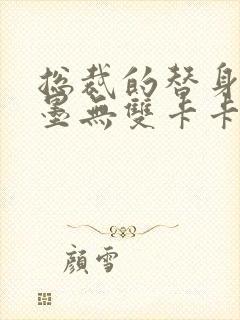 總裁的替身
墨無雙卡卡
顏雪